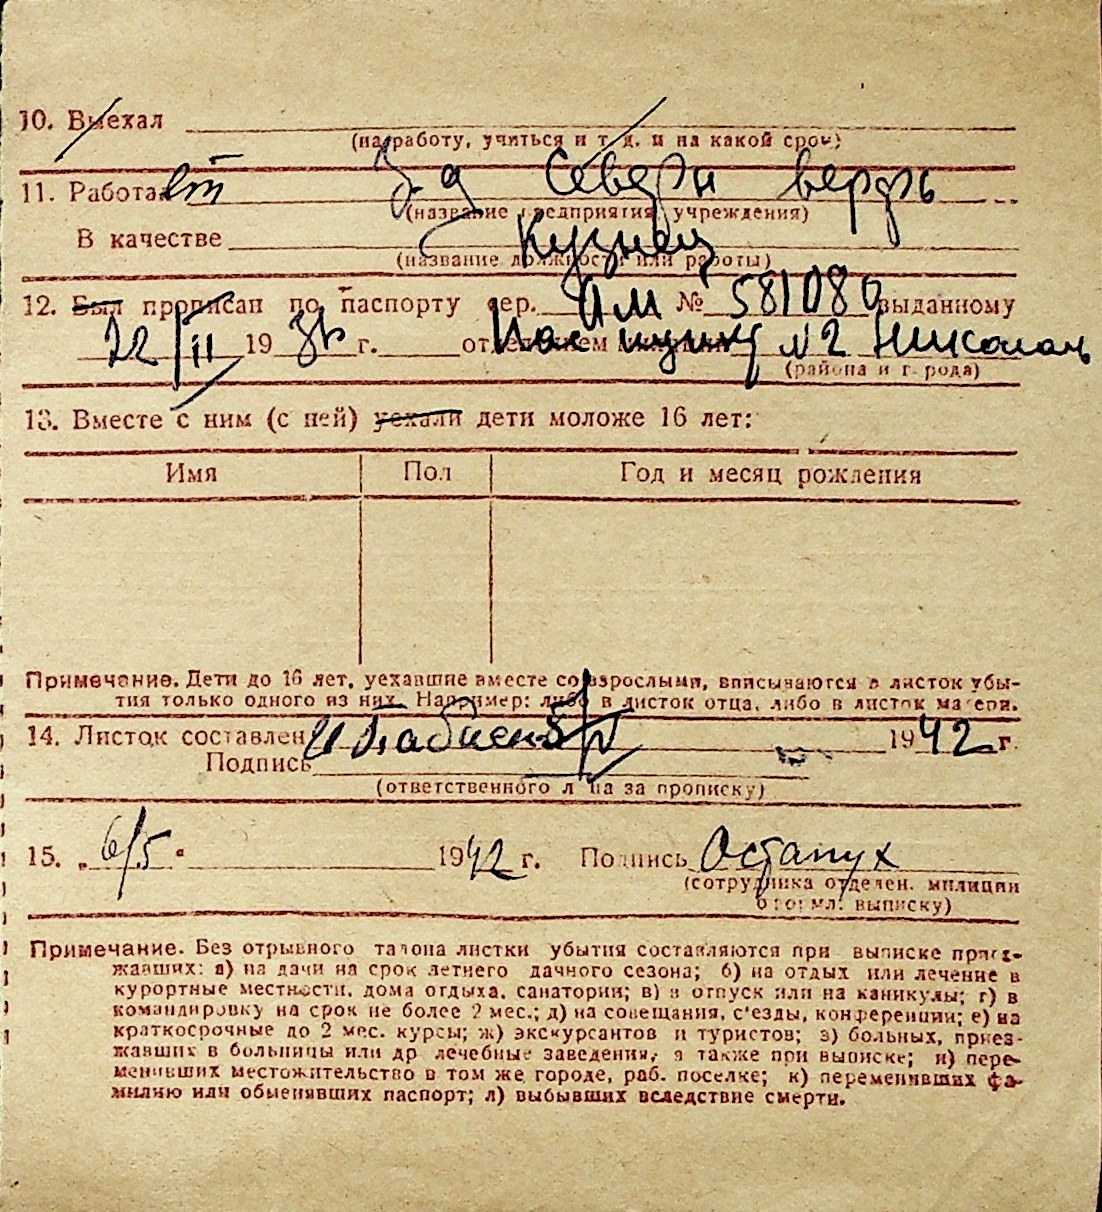 10. Выехал
(на работу, учиться и т. д. и на какой срок)
11. Работает З-д Северн верфь
(название предприятия, учреждения)
В качестве Кузнец
(название должности или работы)
12. Был прописан по паспорту сер. № 581080 выданному
22/II 19 г. отделением №2
(района и города)
13. Вместе с ним (с ней) уехали дети моложе 16 лет:
Имя Пол Год и месяц рождения
Примечание. Дети до 16 лет, уехавшие вместе со взрослыми, вписываются в листок убы-
тия только одного из них. Например: либо в листок отца, либо в листок матери.
14. Листок составлен 1942 г.
Подпись
(ответственного лица за прописку)
15. „6/5“ 1942 г. Подпись Остапух
(сотрудника отделен. милиции
оформл. выписку)
Примечание. Без отрывного талона листки убытия составляются при выписке приез-
жавших: а) на дачи на срок летнего дачного сезона; б) на отдых или лечение в
курортные местности, дома отдыха, санатории; в) в отпуск или на каникулы; г) в
командировку на срок не более 2 мес.; д) на совещания, с'езды, конференции; е) на
краткосрочные до 2 мес. курсы; ж) экскурсантов и туристов; з) больных, приез-
жавших в больницы или др лечебные заведения, а также при выписке; и) пере-
менивших местожительство в том же городе, раб. поселке; к) переменивших фа-
милию или обменявших паспорт; л) выбывших вследствие смерти.